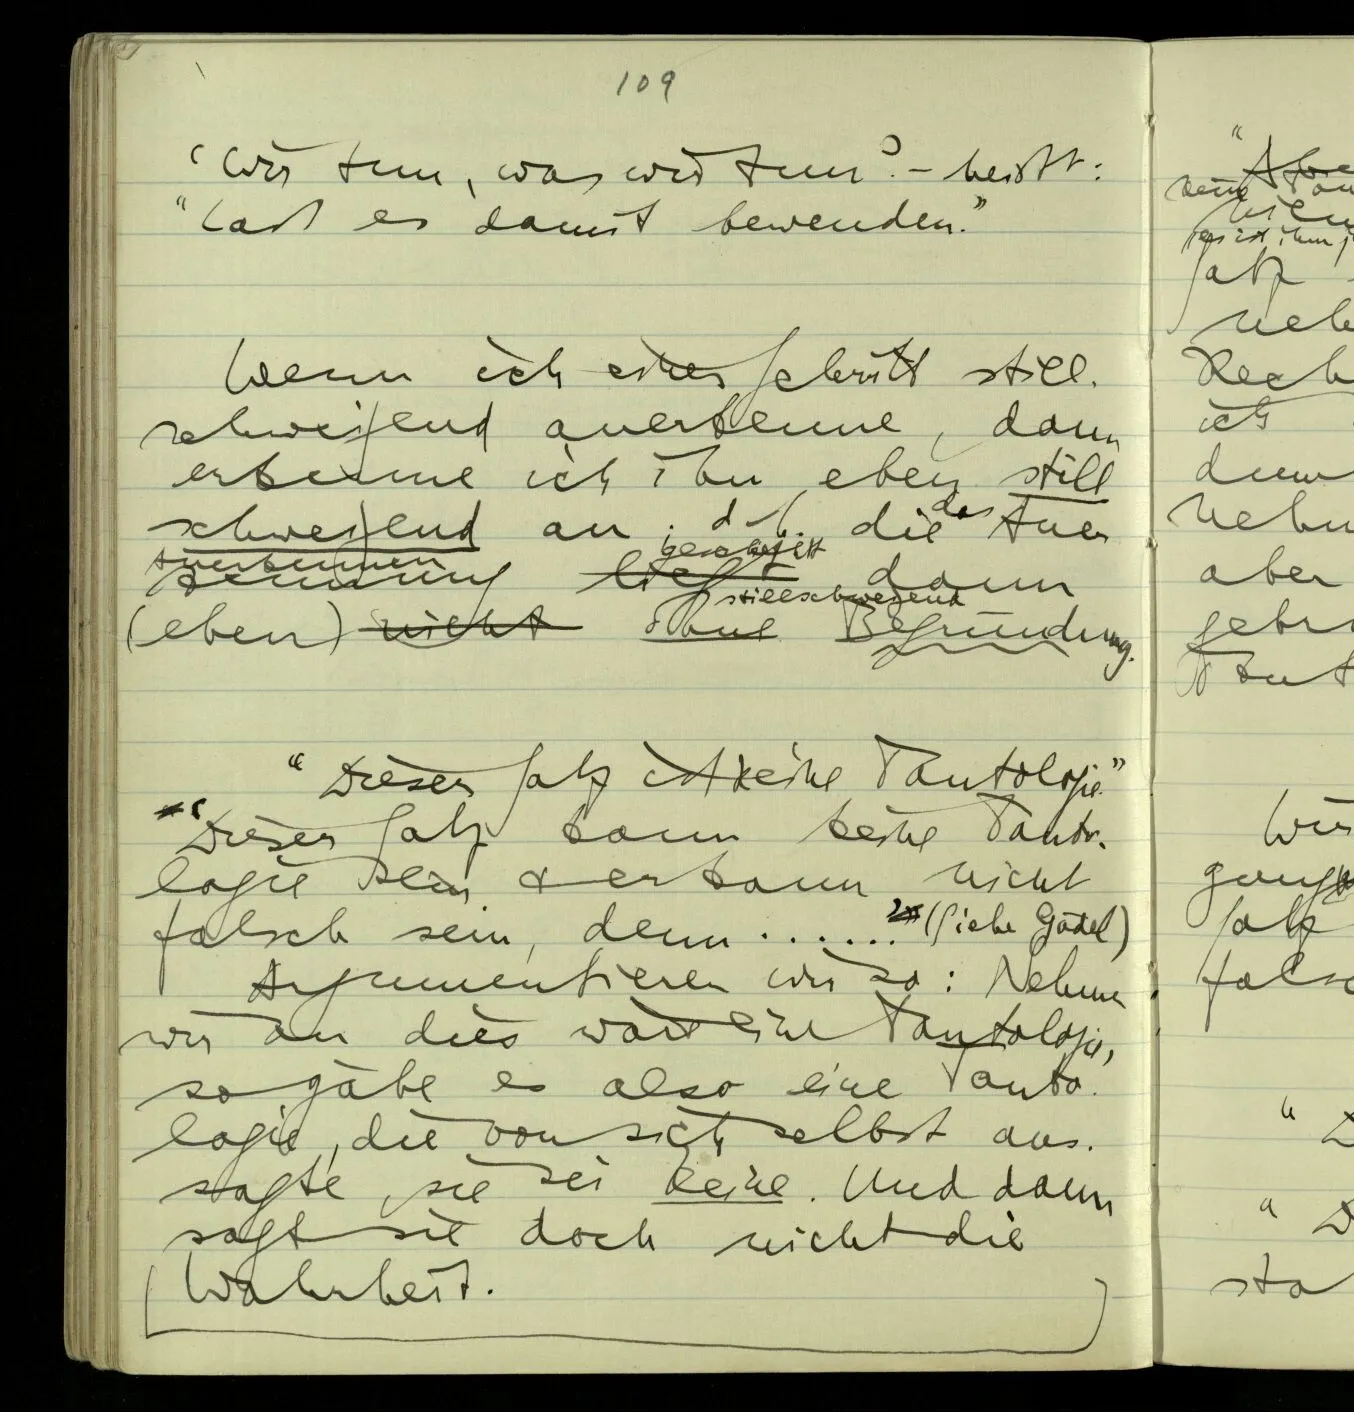 109
"Wir tun, was wir tun". – heißt:
"Laß es damit bewenden."
Wenn ich einen Schritt still-
schweigend anerkenne, dann
erkenne ich ihn eben still
schweigend an. d.h. die das Aner
kennung Anerkennen liegt geschieht dann
(eben) nicht stillschweigend ohne Begründung.
"Dieser Satz ist keine Tautologie."
"Dieser Satz kann keine Tauto-
logie sein & er kann nicht
falsch sein, denn ......" (siehe Gödel)
Argumentieren wir so: Nehmen
wir an dies wäre eine Tautologie,
so gäbe es also eine Tauto-
logie, die von sich selbst aus-
sagte, sie sei keine. Und dann
sagt sie doch nicht die
Wahrheit.
"
keine
Satz
neh
Rech
ich
neh
aber
gebr
Taut
Wir
Satz
falsc
" D
" D
sta